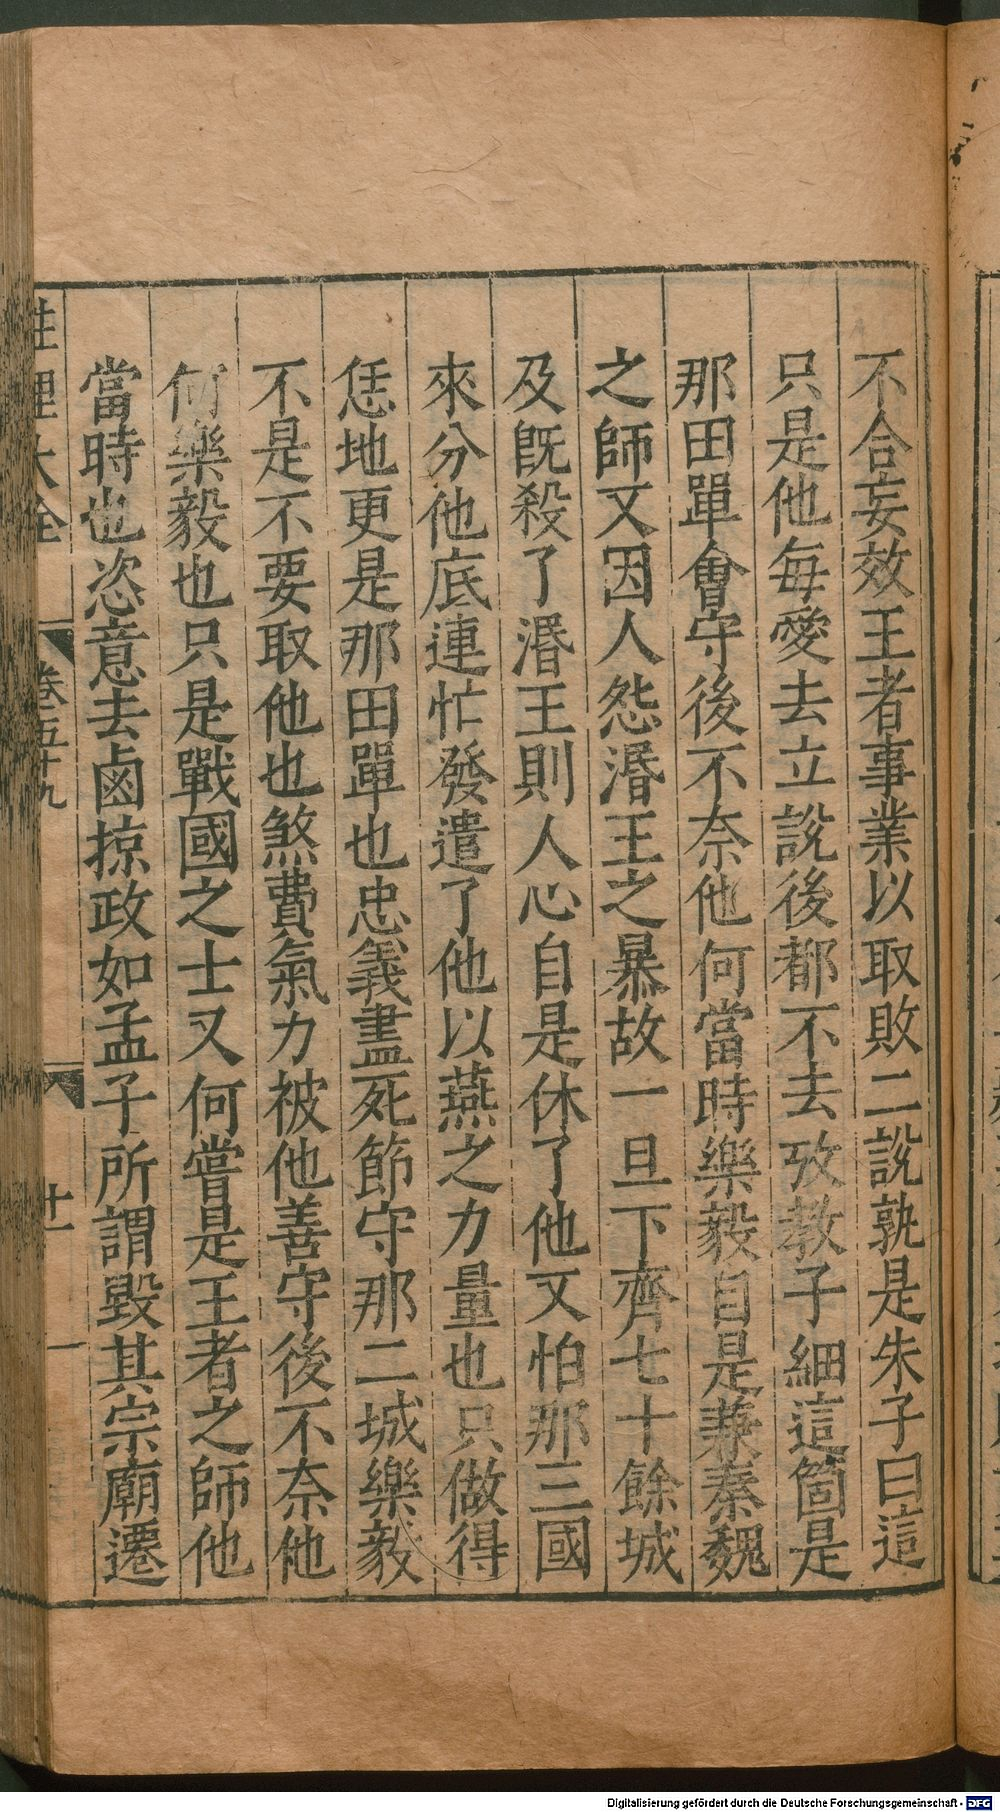 不合妄效王者事業以取敗二説孰是朱子曰這
只是他每愛去立説後都不去攷教子細這箇是
那田單會守後不奈他何當時樂毅自是兼秦魏
之師又因人怨湣王之暴故一旦下齊七十餘城
及旣殺了湣王則人心自是休了他又怕那三國
來分他底連忙發遣了他以燕之力量也只做得
恁地更是那田單也忠義盡死節守那二城樂毅
不是不要取他也煞費氣力被他善守後不奈他
何樂毅也只是戰國之士又何嘗是王者之師他
當時也恣意去鹵掠政如孟子所謂毀其宗廟遷
性理大全 卷五十九 十一
Digitalisierung gefördert durch die Deutsche Forschungsgemeinschaft - DFG